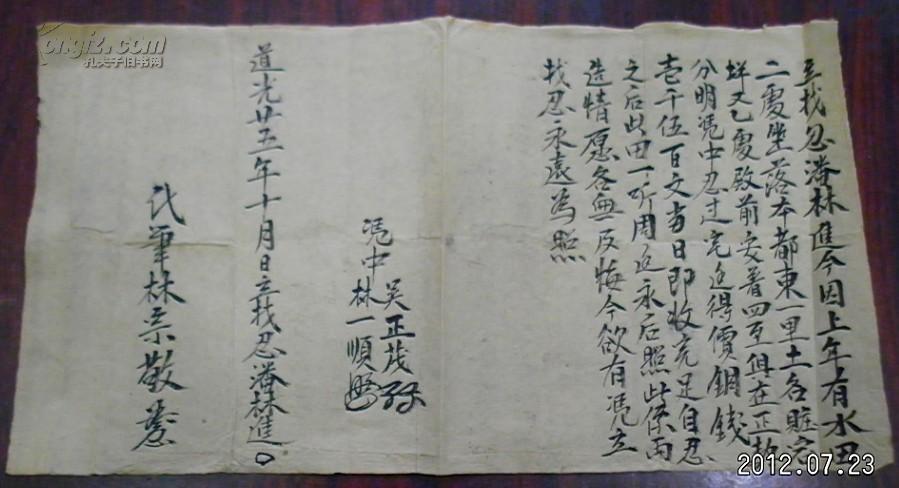 立找忍潘林進今因上年有水田
二處坐落本都東一里土名
垟又乙處殿前安着四至俱在正契
分明憑中忍过宅边得價銅錢
壹千伍百文当日即收完足自忍
之后此田一听周边永后照此係两
造情愿各無反悔今欲有憑立
找忍永遠為照
憑中 吳正茂
林一順
道光廿五年十月日立找忍潘林進
代筆林宗敬
kongfz.com
孔夫子旧书网
2012.07.23